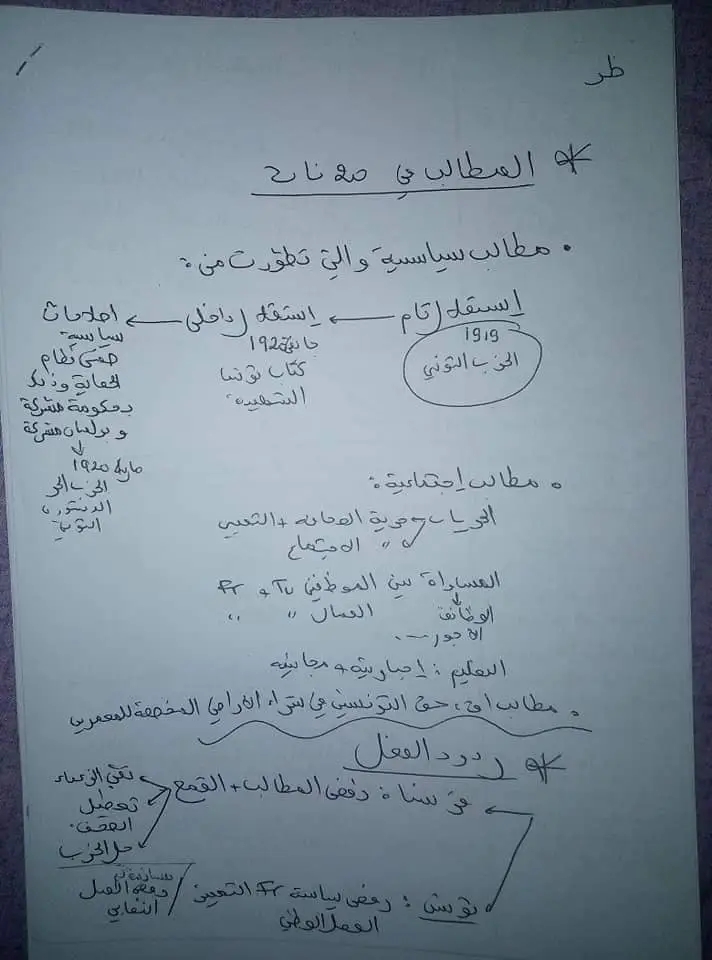 ظر
* المطالب في
• مطالب سياسية والتي تطورت من:
إستقلال تام ← إستقلال داخلي ← اصلاحات
1919
الحزب التونسي
جانفي 1920
كتاب تونس
الشهيدة
سياسية
ضمن نظام
الحماية وذلك
بحكومة مشتركة
و برلمان مشترك
↓
مارس 1920
الحزب الحر
الدستوري
التونسي
• مطالب إجتماعية:
الحريات حرية الصحافة + التعبير
" الاجتماع
المساواة بين الموظفين Tu و Fr
العمال " "
الوظائف
الأجور ...
التعليم: إجبارية + مجانية
• مطالب اق: حق التونسيين في شراء الاراضي المخصصة للمعمرين
* ردود الفعل
فرنسا: رفض المطالب + القمع
نفي الزعماء
تعطيل
الصحف.
حل الحزب
تونس: رفض سياسة Fr
العمل الوطني
رفض العمل
النقابي